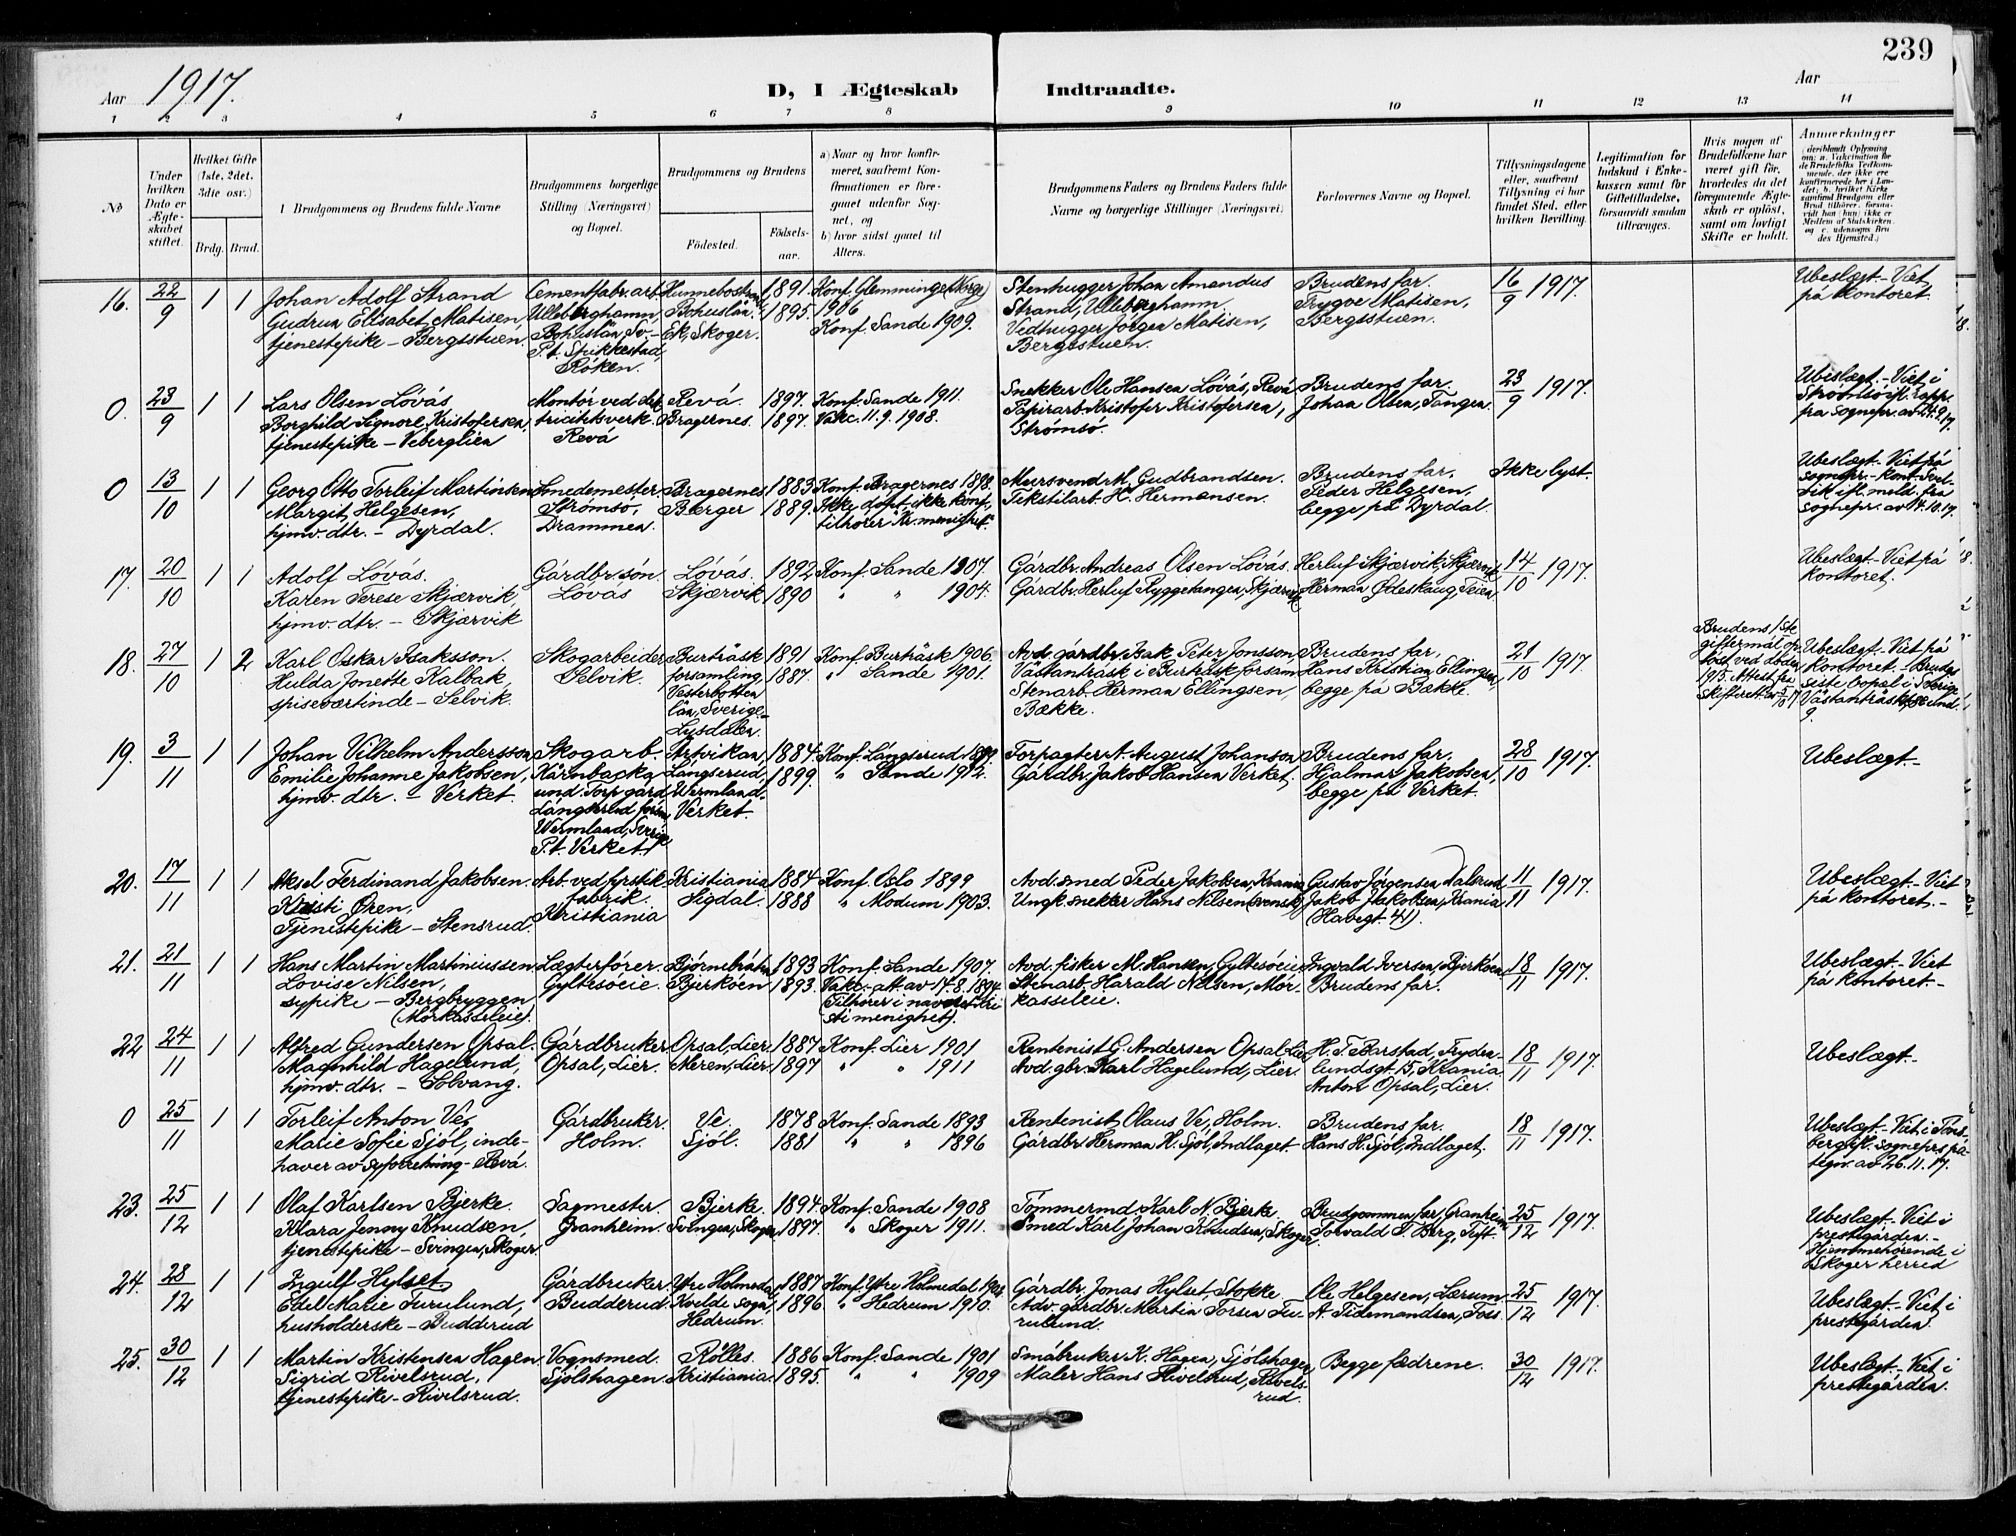 239
Aar 1917.
D, I Ægteskab Indtraadte.
Aar
1 2 3 4 5 6 7 8 9 10 11 12 13 14
No
Under hvilken Dato er Ægteskabet stiftet.
Hvilket Gifte (1ste, 2det, 3die osv.)
Brdg. Brud.
Brudgommens og Brudens fulde Navne
Brudgommens borgerlige Stilling (Næringsvei) og Bopæl.
Brudgommens og Brudens
Fødested.
Fødselsaar.
a) Naar og hvor konfirmeret, saafremt Konfirmationen er foregaaet udenfor Sognet, og
b) hvor sidst gaaet til Alters.
Brudgommens Faders og Brudens Faders fulde Navne og borgerlige Stillinger (Næringsvei)
Forlovernes Navne og Bopæl.
Tillysningsdagene eller, saafremt Tillysning ei har fundet Sted, efter hvilken Bevilling.
Legitimation for Indskud i Enkekassen samt for Giftetilladelse, forsaavidt saadan tiltrænges.
Hvis nogen af Brudefolkene har været gift før, hvorledes da det foregaaende Ægteskab er opløst, samt om lovligt Skifte er holdt.
Anmerkninger
16. 22/9 1 1
Johan Adolf Strand
Gudrun Elisabet Matisen,
tjenestepike – Bergsstuen.
Cementfabr. arb.
Ulleberghamn,
Bohuslän, Sv. –
P.t. Spikkestad,
Røken.
Hunnebostrand
Bohuslän.
Ek, Skoger.
1891.
1895.
Konf. Glemminge (Norge)
1906
Konf. Sande 1909.
Stenhugger Johan Amandus
Strand, Ulleberghamn.
Vedhugger Jørgen Matisen,
Bergsstuen.
Brudens far.
Trygve Matisen,
Bergsstuen.
16/9 1917.
Ubeslægt. – Viet
på kontoret.
0. 23/9 1 1
Lars Olsen Løvås,
Borghild Signore Kristofersen,
tjenestepike – Veberglien
Montør ved elek
tricitetsverk.
Revå
Revå.
Bragernes.
1897.
1897.
Konf. Sande 1911.
Vakc. 11.9.1908.
Snekker Ole Hansen Løvås, Revå
Papirarb. Kristofer Kristofersen,
Strømsø.
Brudens far.
Johan Olsen, Tangen.
23/9 1917.
Ubeslægt. – Viet i
Strømsø ifl. rapp.
fra sognepr. av 24.9.17.
0 13/10 1 1
Georg Otto Torleif Martinsen
Margit Helgesen,
hjmv. dtr. – Dyrdal.
Smedemester
Strømsø,
Drammen.
Bragernes
Berger
1883
1889.
Konf. Bragernes 1898.
Ikke døpt, ikke konf.,
tilhører Kr. menighet.
Mursvend M. Gudbrandsen.
Tekstilarb. H. Hermansen.
Brudens far.
Peder Helgesen,
begge på Dyrdal.
Ikke lyst.
Ubeslægt. – Viet på
sognepr. – kont. Svel-
vik ifl. meld. fra
sognepr. av 14.10.17.
17. 20/10 1 1
Adolf Løvås.
Karen Terese Skjærvik,
hjmv. dtr. – Skjærvik
Gårdbr.søn.
Løvås
Løvås.
Skjærvik
1892
1890
Konf. Sande 1907.
" " 1904.
Gårdbr. Andreas Olsen Løvås.
Gårdbr. Herluf Ryggetangen, Skjærvik
Herluf Skjærvik, Skjærvik
Herman Ødeskaug, Teien,
14/10 1917.
Ubeslægt – Viet på
kontoret.
18. 27/10 1 2
Karl Oskar Isaksson.
Hulda Jonette Kalbak,
spiseværtinde – Selvik.
Skogarbeider
Selvik.
Burträsk
forsamling
Västerbotten
län, Sverige. –
Lysdalen.
1891
1887.
Konf. Burträsk 1906.
" Sande 1901.
Avd. gårdbr. Isak Peter Jonsson,
Västanträsk i Burträsk forsam
Stenarb. Herman Ellingsen,
Bække.
Brudens far.
Hans Kristian Ellingsen,
begge på Bække.
21/10 1917.
Brudens 1ste
giftermål op-
løst ved døden
1915. Attest fra
skifterett av 5/10 17
Ubeslægt. – Viet på
kontoret – Brudgs
siste bopæl i Sverige
Västanträsk,
9.
19. 3/11 1 1
Johan Vilhelm Andersson
Emilie Johanne Jakobsen,
hjmv. dtr. – Verket.
Skogarb.
Kärnbacka
und. Torp gård
Långserud førs.
Wermland, Sverige
P.t. Verket.
Arvikan,
Långserud,
Wermland.
Verket.
1884.
1899.
Konf. Långserud 1899.
" Sande 1912.
Torpagter A. August Johanson
Gårdbr. Jakob Hansen Verket,
Brudens far.
Hjalmar Jakobsen,
begge på Verket.
28/10 1917.
Ubeslægt. –
20. 17/11 1 1
Aksel Ferdinand Jakobsen.
Kristi Øren,
Tjenestepike – Stensrud.
Arb. ved fyrstik
fabrik.
Kristiania
Kristiania
Sigdal.
1884
1888
Konf. Oslo 1899
" Modum 1903.
Avd. smed Peder Jakobsen, Krania
Ungk. snekker Hans Nilsen (svensk)
Gustav Jørgensen Dalsrud
Jakob Jakobsen, Krania
(Havegt. 41).
11/11 1917.
Ubeslægt – Viet
på kontoret. –
21. 21/11 1 1
Hans Martin Martiniussen
Lovise Nilsen,
sypike – Bergbryggen
(Mørkasseleie).
Lægterfører.
Gyltesøeie.
Bjerkøen
1893
1893.
Konf. Sande 1907.
Vakc.-att. av 14.8.1894.
Avd. fisker M. Hansen, Gyltesøeie
Stenarb. Harald Nilsen, Mør-
kasseleie.
Ingvald Iversen, Bjerkøen
Brudens far.
18/11 1917.
Ubeslægt. – Viet
på kontoret –
22 24/11 1 1
Alfred Gundersen Opsal.
Magnhild Hagelund,
hjmv. dtr. – Solvang.
Gårdbruker.
Opsal, Lier.
Opsal, Lier.
Meren, Lier.
1887
1897
Konf. Lier 1901
" " 1911
Rentenist G. Andersen Opsal, Lier
Avd. gbr. Karl Hagelund, Lier.
H. T. Barstad, Fryden-
lundsgt. 15, Krania.
Anton Opsal, Lier.
18/11 1917.
Ubeslægt. –
0 25/11 1 1
Torleif Anton Ve,
Marie Sofie Sjøl, inde-
haver av syforretning – Revå.
Gårdbruker.
Holm.
Ve.
Sjøl.
1878
1881
Konf. Sande 1893
" " 1896
Rentenist Olaus Ve, Holm.
Gårdbr. Herman H. Sjøl, Indlaget.
Brudens far.
Hans H. Sjøl, Indlaget.
18/11 1917.
Ubeslægt. – Viet i Tøns-
berg ifl. sognepr.s på-
tegn. av 26.11.17.
23. 25/12 1 1
Olaf Karlsen Bjerke.
Klara Jenny Knudsen,
tjenestepike – Svingen, Skoger.
Sagmester.
Granheim.
Bjerke.
Svingen, Skoger
1894.
1897.
Konf. Sande 1908
" Skoger 1911.
Tømmermd. Karl N. Bjerke.
Smed Karl Johan Knudsen, Skoger.
Brudgommens far, Granheim
Torvald T. Berg, Tuft.
25/12 1917.
Ubeslægt. – Viet i
prestegården. –
Hjemmehørende i
Skoger herred
24. 28/12 1 1
Ingulf Hylset
Edel Marie Furulund,
husholderske – Budderud
Gårdbruker.
Budderud.
Ytre Holmedal,
Kvelde sogn,
Hedrum.
1887
1896
Konf. Ytre Holmedal
" Hedrum 1910.
Gårdbr. Jonas Hylset, Stokke
Adv. gårdbr. Martin Torsen Fu-
rulund.
Ole Helgesen, Lærum.
A. Tidemandsen, Foss.
25/12 1917.
Ubeslægt. – Viet i
prestegården.
25. 30/12 1 1
Martin Kristensen Hagen.
Sigrid Rivelsrud,
tjenestepike – Rivelsrud.
Vognsmed.
Sjølshagen.
Rølles.
Kristiania.
1886
1895.
Konf. Sande 1901
" " 1909
Småbruker K. Hagen, Sjølshagen
Maler Hans Rivelsrud, Rivels-
rud.
Begge fædrene.
30/12 1917.
Ubeslægt. – Viet i
prestegården.